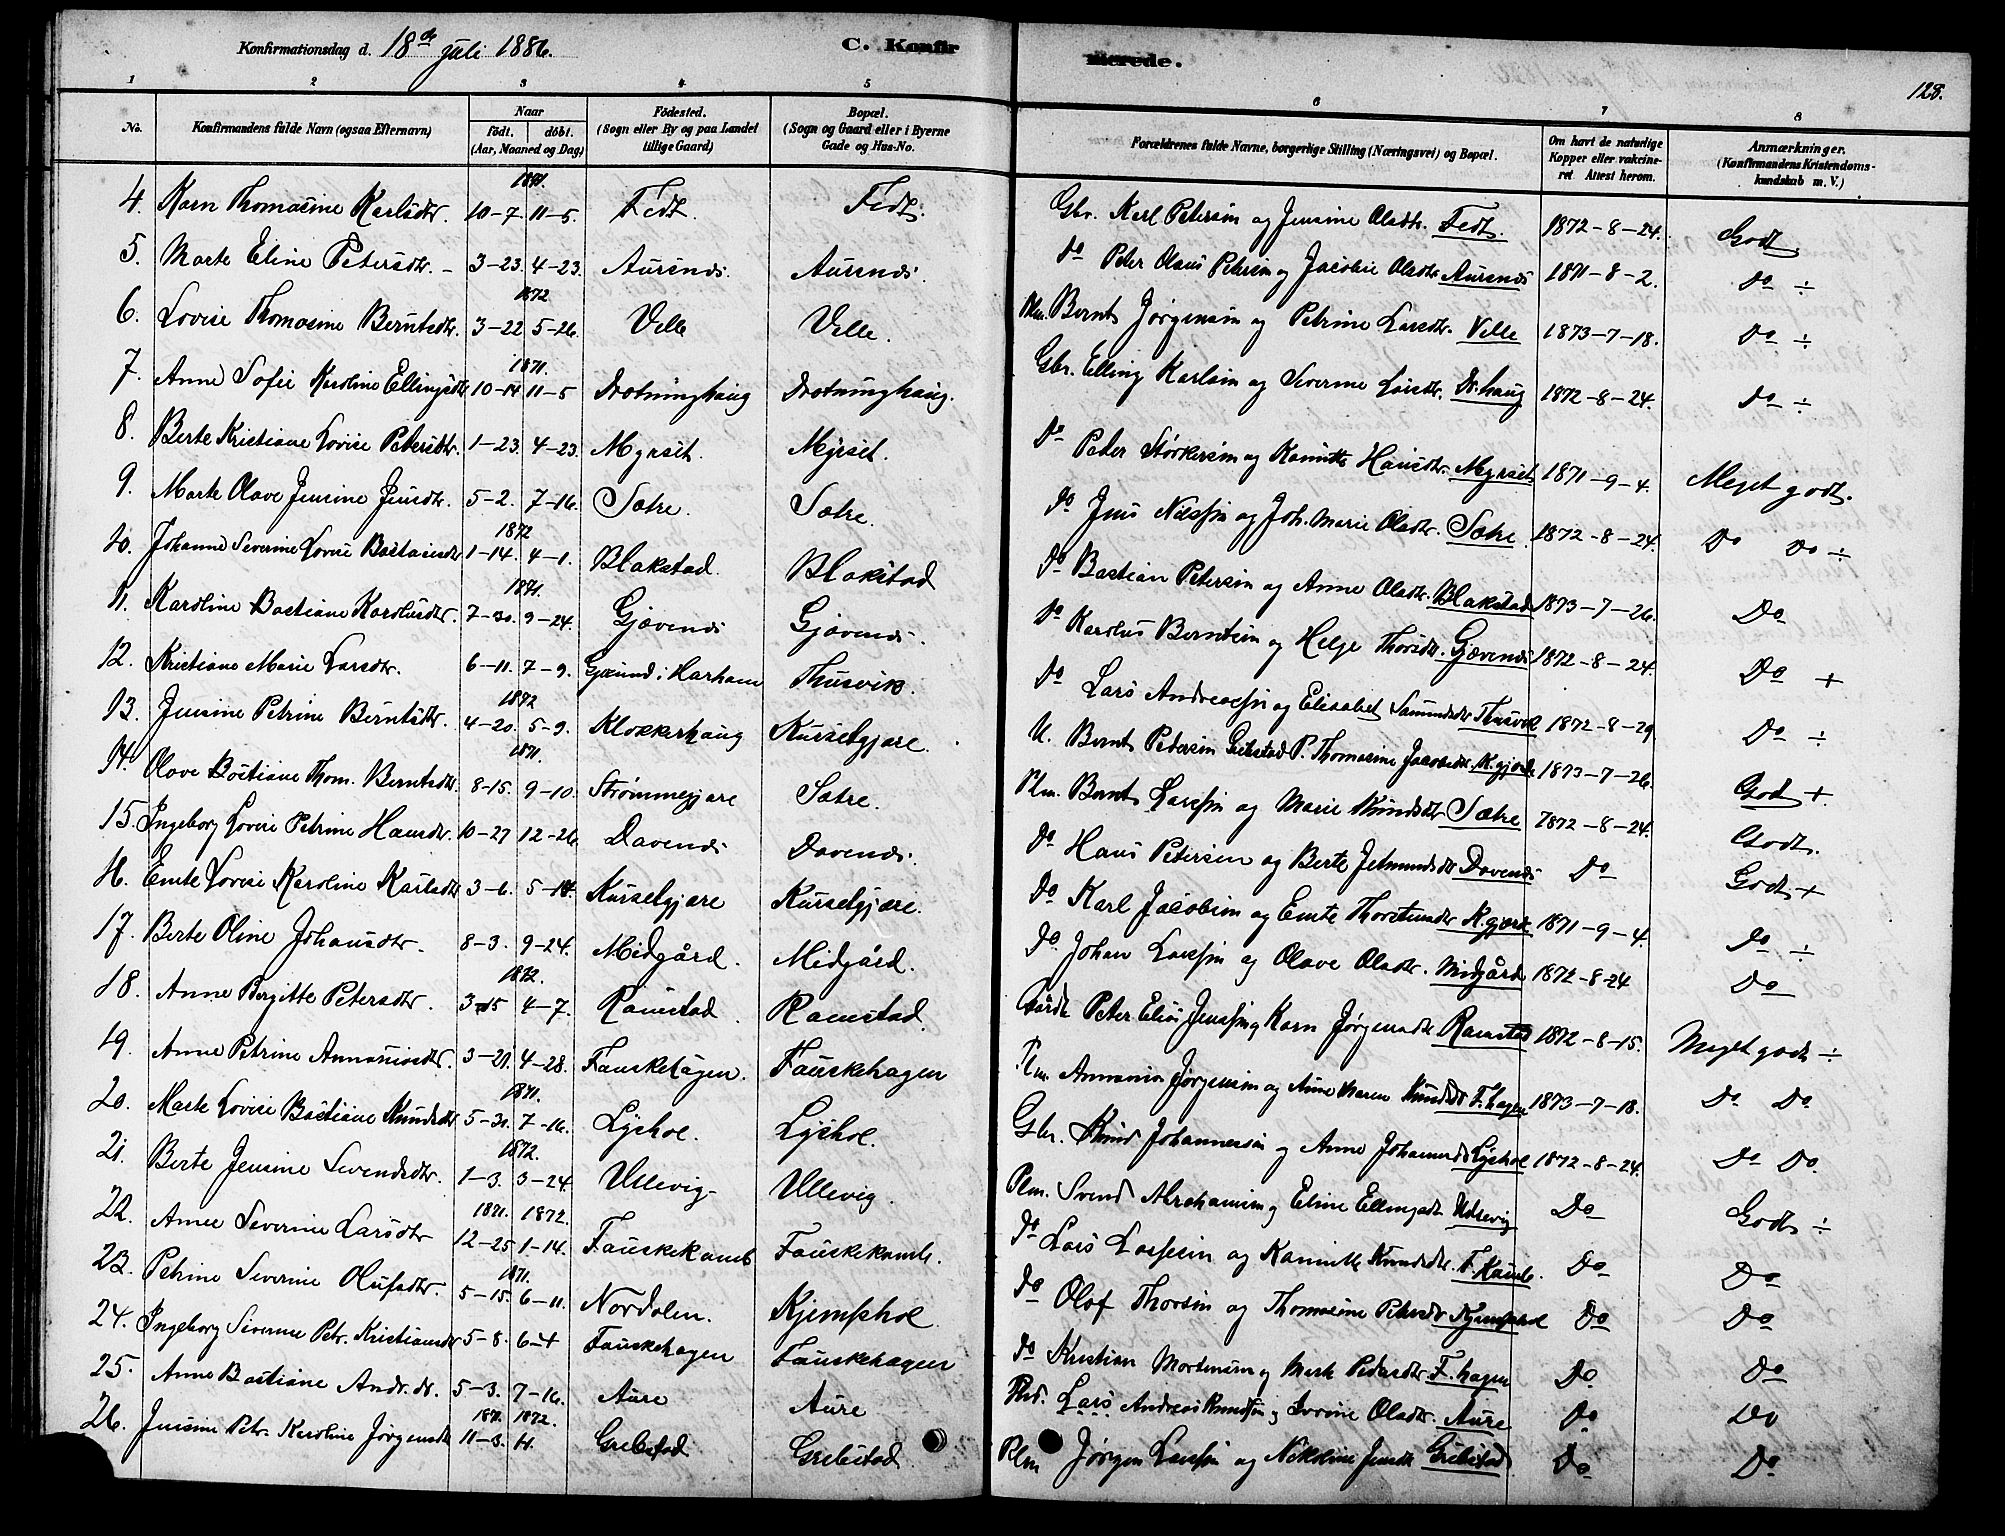 Konfirmationsdag d. 18de Juli 1886. C. Konfir merede. 128.
1 2 3 4 5 6 7 8
No. Konfirmandens fulde Navn (ogsaa Efternavn) Naar födt. döbt. (Aar, Maaned og Dag) Födested. (Sogn eller By og paa Landet tillige Gaard) Bopæl. (Sogn og Gaard eller i Byerne Gade og Hus-No. Forældrenes fulde Navne, borgerlige Stilling (Næringsvei) og Bopæl. Om havt de naturlige Kopper eller vakcineret. Attest herom. Anmærkninger. (Konfirmandens Kristendomskundskab m. V.)
1871.
4. Karn Thomasine Karlsdtr. 10-7. 11-5. Fedt. Fedt. Gbr. Karl Petersen og Jensine Olsdtr. Fedt. 1872-8-24. Godt
5. Marte Eline Petersdtr. 3-23. 4-23. Aursnes. Aursnes. Do Peter Olaus Petersen og Jacobie Olsdtr. Aursnes 1871-8-2. Do ÷
1872
6. Lovise Thomasine Berntsdtr. 3-22 5-26. Velle Velle. Plm. Bernt Jørgensen og Petrine Larsdtr. Velle 1873-7-18. Do ÷
1871.
7. Anne Sofie Karoline Ellingsdtr 10-14 11-5 Drotninghaug Drotninghaug. Gbr. Elling Karlsen og Severine Larsdtr. Dr. haug 1872-8-24. Do ÷
8. Berte Kristiane Lovise Petersdtr. 1-23. 4-23. Myrset. Myrset. Do Peder Størkersen og Kanutte Hansdtr. Myrset 1871-9-4. Meget godt.
9. Marte Olave Jensine Jensdtr. 5-2. 7-16. Sætre. Sætre. Do Jens Nilssen og Joh. Marie Olsdtr. Sætre 1872-8-24. Do Do ÷
1872
10. Johanne Severine Lovise Bastiansdtr 1-14. 4-1. Blakstad. Blakstad Do Bastian Petersen og Anne Olsdtr. Blakstad 1873-7-26. Do
1871.
11. Karoline Bastiane Karolusdtr. 7-30. 9-24. Gjævenes Gjævenes. Do Karolus Berntsen og Helge Thorsdtr. Gjævenes 1872-8-24. Do +
12. Kristiane Marie Larsdtr. 6-11. 7-9. i Harham Thusvik. Do Lars Andreassen og Elisabet Thusvik 1872-8-29 Do ÷
1872
13. Jensine Petrine Berntsdtr. 4-20. 5-9. Klokkerhaug Kurselgjære. U. Bernt Pedersen Grebstad P. Thomasine Jacobsdtr. K.gjære 1873-7-26. Godt +.
1871.
14. Olave Bastiane Thom. Berntsdtr 8-15. 9-10. Strømmegjære Sætre. Plm. Bernt Larssen og Marie Knudsdtr Sætre 1872-8-24. Godt.
15. Ingeborg Lovise Petrine Hansdtr. 10-27 12-26. Davenes Davenes. Do Hans Petersen og Berte Jetmundsdtr Davenes Do Godt +
16. Emte Lovise Karoline Karlsdtr 3-6. 5-18. Kurselgjære Kurselgjære. Do Karl Jacobsen og Emte K.gjære 1871-9-4. Do ÷
17. Berte Oline Johansdtr. 8-3. 9-24. Midgård. Midgård. Do. Johan Larssen og Olave Olsdtr. Midgård 1872-8-24 Do
1872.
18. Anne Bergitte Petersdtr. 3-15 4-7. Ramstad. Ramstad. Gårdb Peter Elias Jenssen og Karn Jørgensdtr Ramstad 1872-8-15. Meget godt ÷
19. Anne Petrine Annaniasdtr. 3-21. 4-28. Fauskehagen. Fauskehagen Plm. Annanias Jørgensen og Anne Maren Knudsdtr F. hagen 1873-7-18. Do Do
1871.
20. Marte Lovise Bastiane Knudsdtr 5-31. 7-16. Lyshol. Lyshol. Gbr. Knud Johannessen og Anne Johansdtr Lyshol 1872-8-24. Do Do.
1872.
21. Berte Jensine Svendsdtr. 1-3. 3-24. Ullevig Ullevig. Plm. Svend Abrahamsen og Eline Ellingsdtr Ullevig Do Godt ÷
1871. 1872.
22. Anne Severine Larsdtr 12-25 1-14. Fauskekamb Fauskekamb. Do Lars Larssen og Kanutte Knudsdtr. F. Kamb. Do Do
1871.
23. Petrine Severine Olufsdtr. 5-15. 6-11. Nordalen. Kjemphol. Do Olof Thorsen og Thomasine Petersdtr Kjempehol Do Do
24. Ingeborg Severine Petr. Kristiansdtr 5-8. 6-4 Fauskehagen Fauskehagen Do Kristian Mortensen og Marte Pedersdtr. F. hagen Do. Do
25. Anne Bastiane Andr. dt. 5-3. 7-16. Aure Aure Lars Andreas Knudsen og Olsdtr. Aure Do Do
1871. 1872.
26. Jensine Petr. Karoline Jørgensdtr 11-3. Grebstad Grebstad. Plm Jørgen Larssen og Nikoline Jensdtr Grebstad Do Do